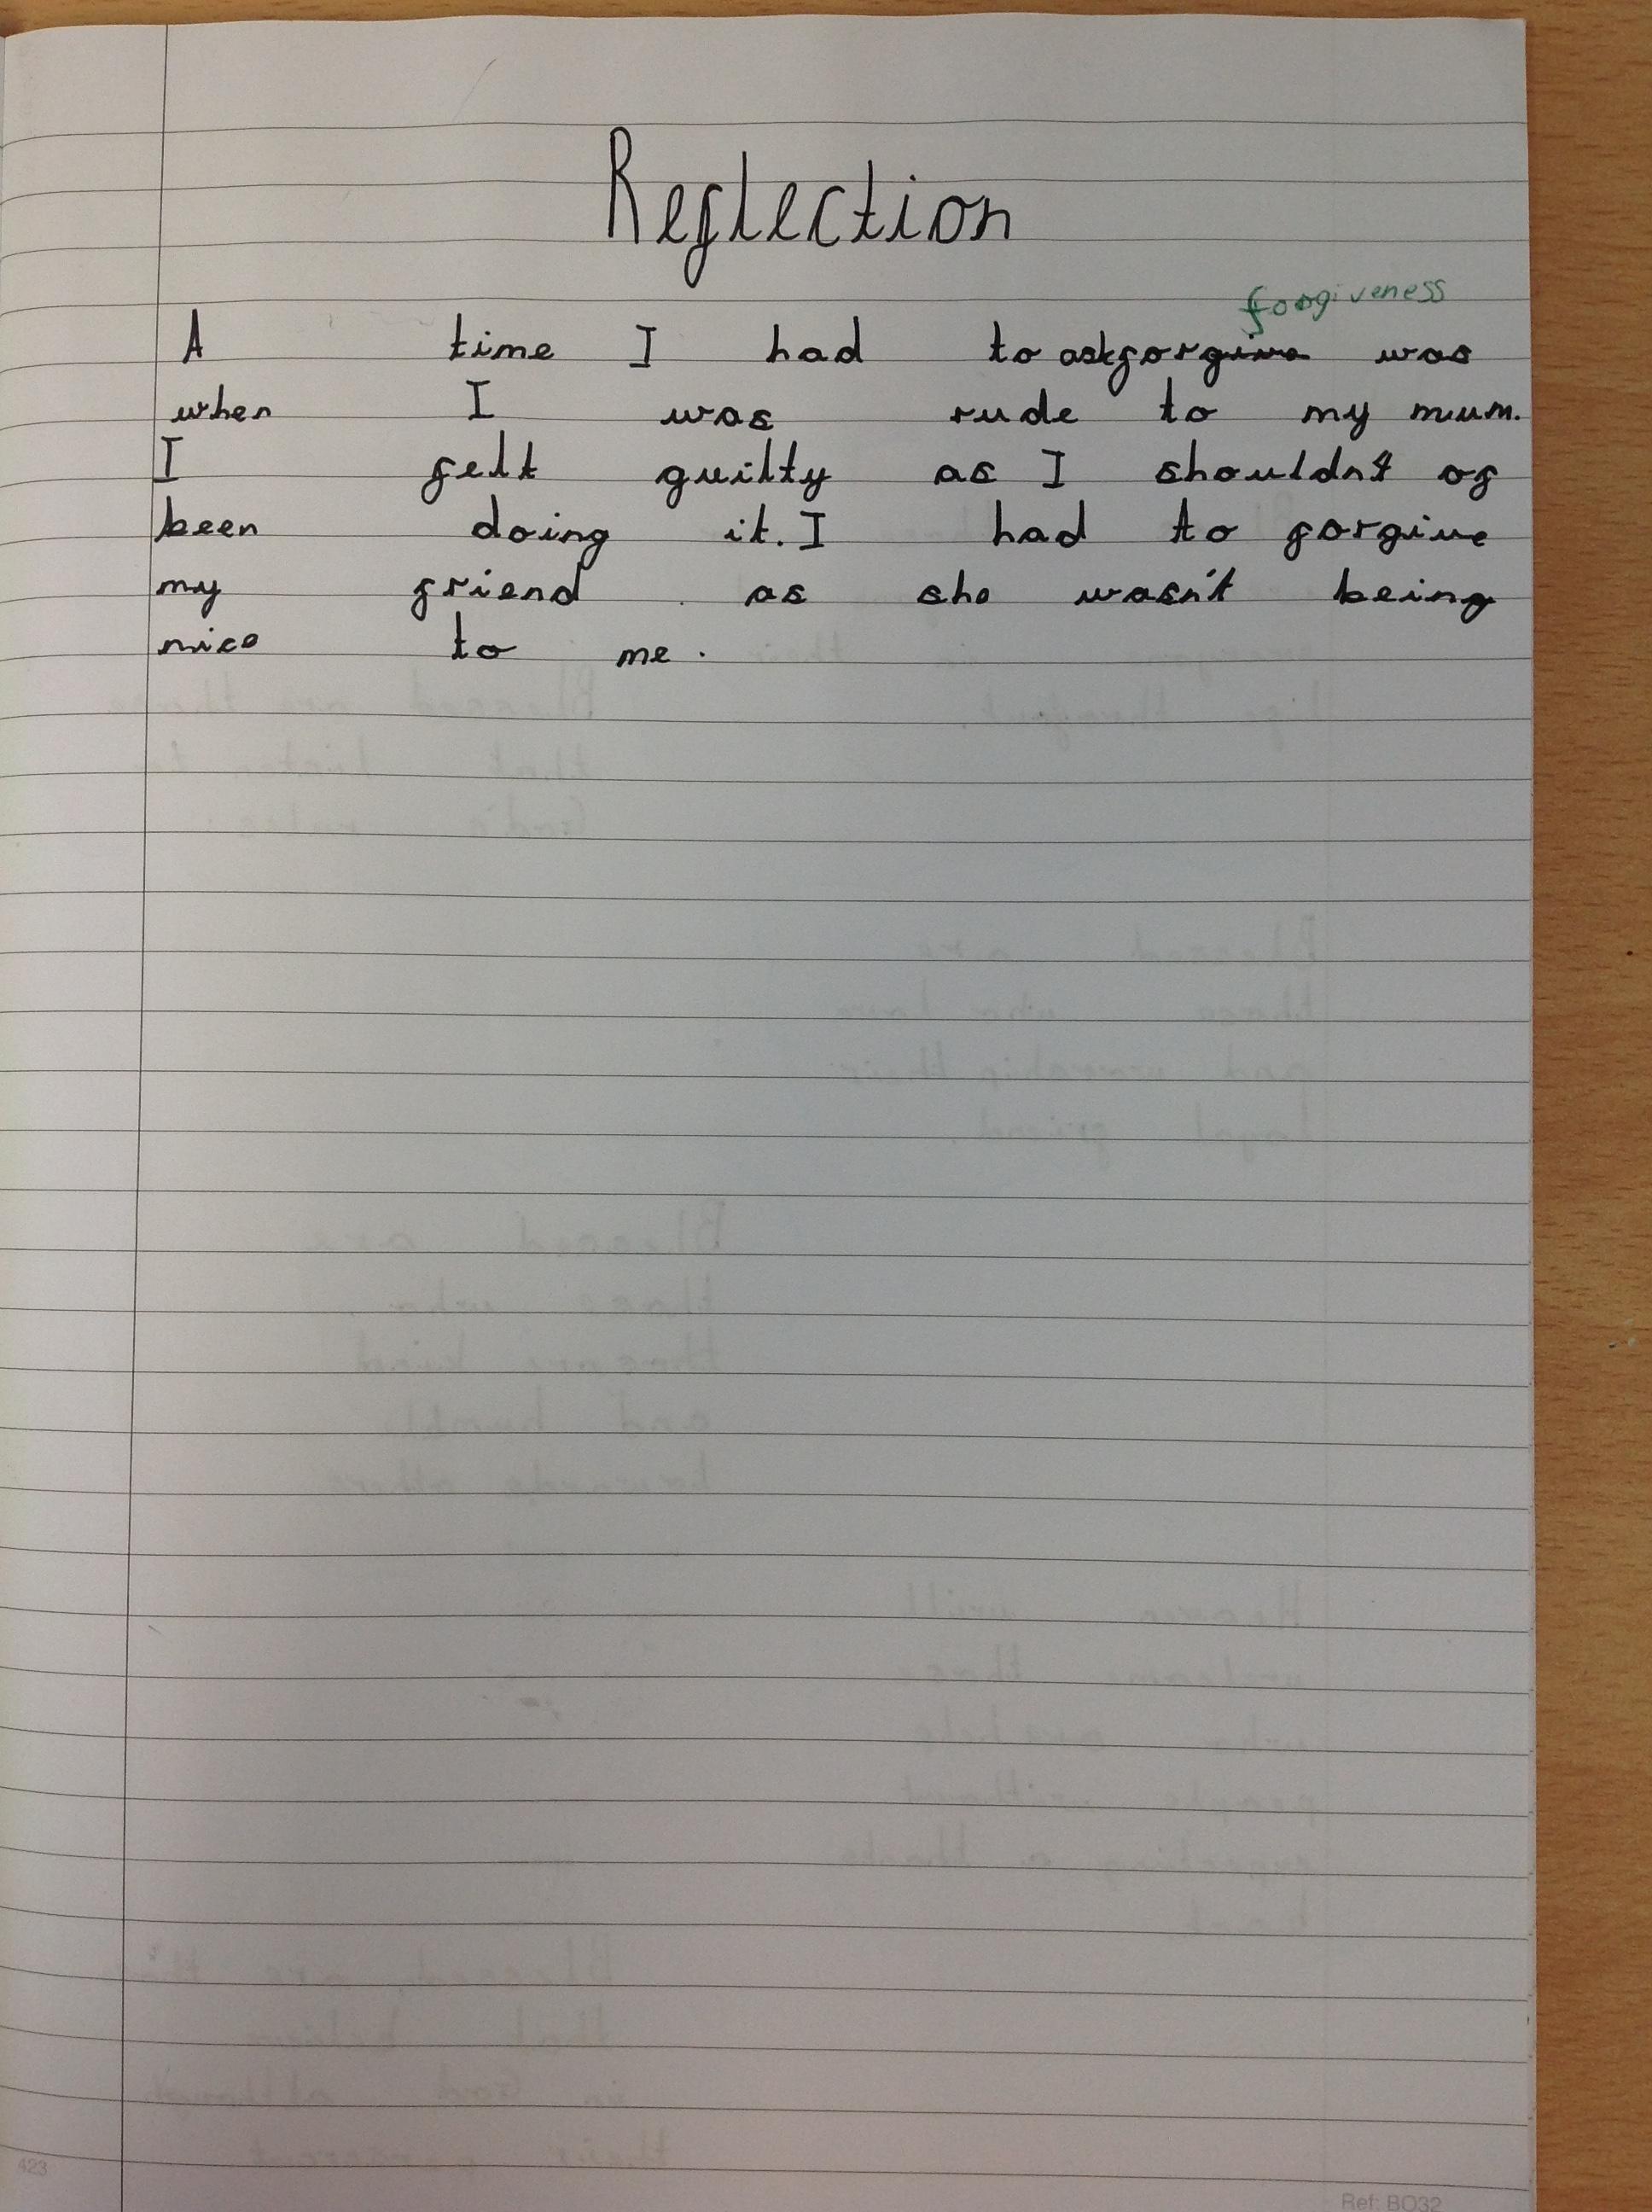 Reflection
forgiveness
A time I had to ask forgive was
when I was rude to my mum.
I felt guilty as I shouldn't of
been doing it. I had to forgive
my friend as she wasn't being
nice to me.
423
Ref: BO32